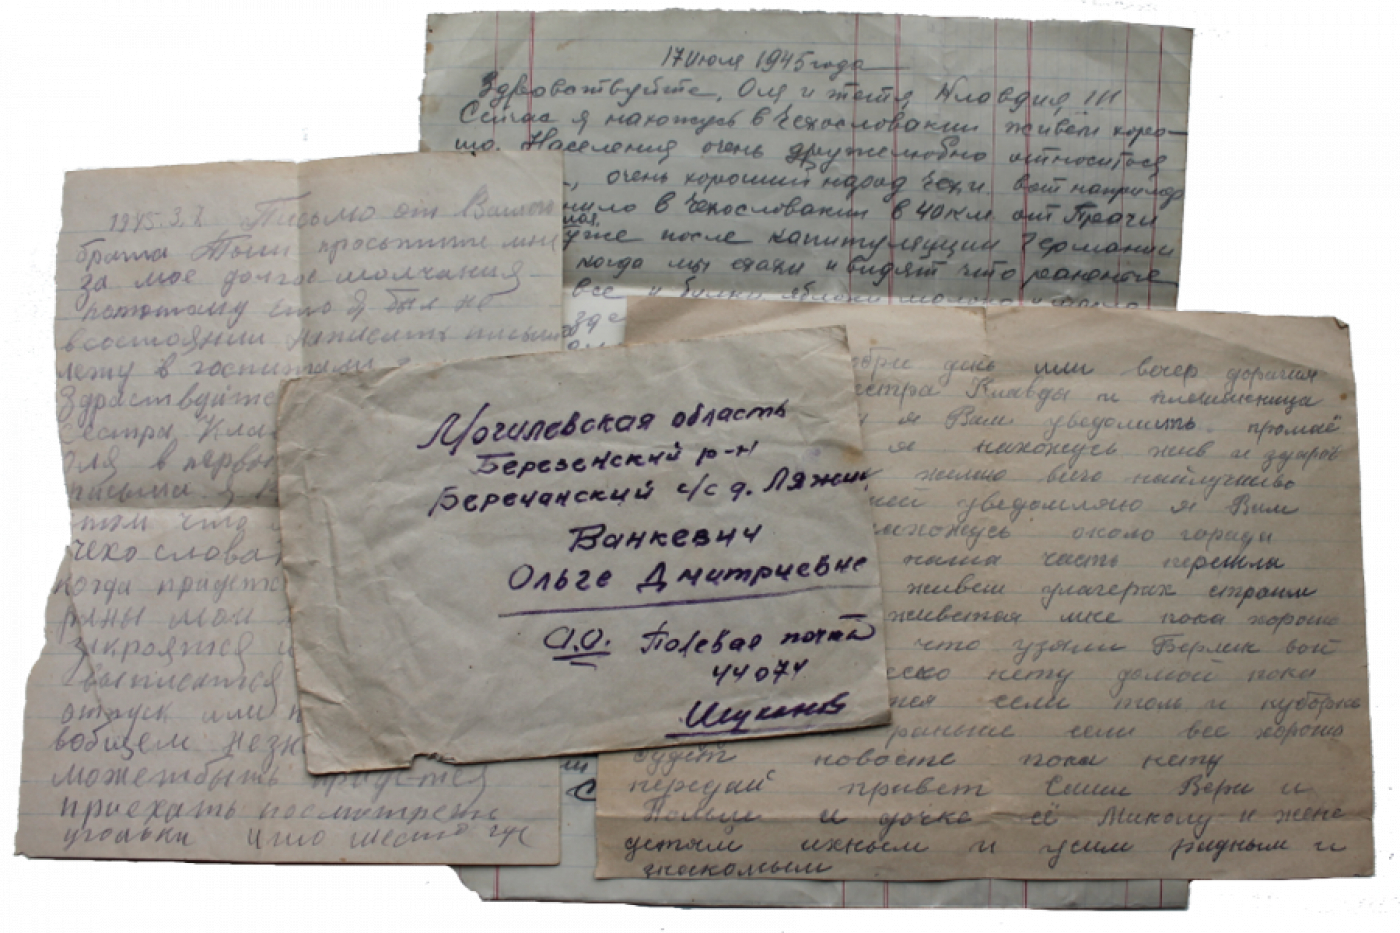 17 июля 1945 года
Здравствуйте, Оля и тётя Клавдия !!!
Сейчас я нахожусь в Чехословакии живём хоро-
шо. Населения очень дружелюбно относиться
очень хороший народ чехи. вот например
в Чехословакии в 40 км. от Праги
уже после капитуляции Германии
когда мы ехали и видят что раненые
все и булки яблоки молоко и
1945.3.
Письмо от Вашего
брата просьтите мне
за мое долгое молчания
потому што я был не
всостоянии написать письмо
лежу в госпитали
Здраствуйте
Сестра Кла
Оля в перво
письма я
том что
чехословак
когда придется
раны мои
закроятся и
выписатся
отпуск или
вобщем незн
можетбыть придется
приехать посмотреть
угольки
Могилевская область
Березенский р-н
Беречанский с/с д. Ляжки
Ванкевич
Ольге Дмитриевне
А.О. Полевая почта
44074
Шуканов
обри день или вочер дорагия
естра Клавды и племеница
и я Вам уведомить
я нахожусь жив и здаров
желаю всего найлучшево
уведомляю я Вам
нахожусь около горади
наша часть перешла
живем
живется мне пока хорошо
что узяли Берлин
нету домой пока
если только
раньше если все хорошо
будет новосте пока нету
передай привет Саши Вери и
Польци и дочке её Миколу и жене
детям ихным и усим родным и
знакомым